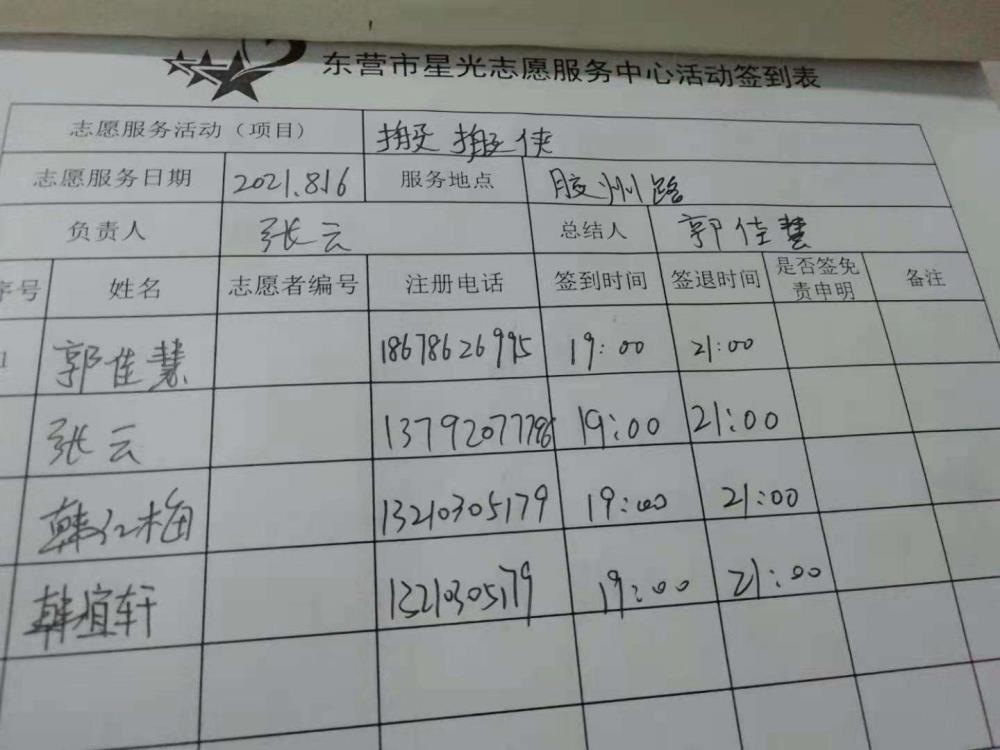 东营市星光志愿服务中心活动签到表
志愿服务活动（项目） 搬搬侠
志愿服务日期 2021.8.16 服务地点 胶州路
负责人 张云 总结人 郭佳慧
序号 姓名 志愿者编号 注册电话 签到时间 签退时间 是否签免责申明 备注
1 郭佳慧 18678626995 19:00 21:00
张云 13792077786 19:00 21:00
韩红梅 13210305179 19:00 21:00
韩宜轩 13210305179 19:00 21:00